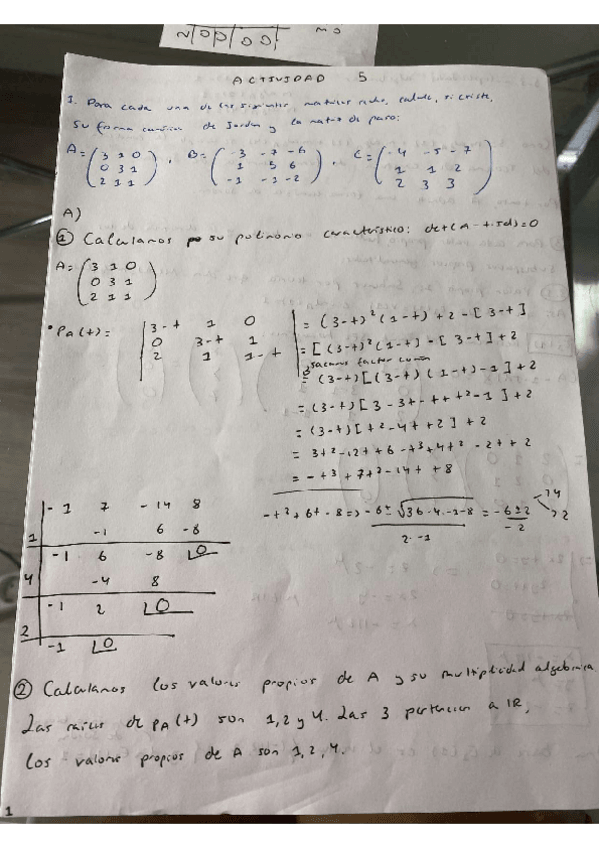 ACTIVIDAD 5
I. Para cada una de las siguientes matrices reales, calcule, si existe,
su forma canónica de Jordan y la matriz de paso:
A = ( 3 1 0 / 0 3 1 / 2 1 1 ), B = ( -3 -7 -6 / 1 5 6 / -1 -1 -2 ), C = ( -4 -5 -7 / 1 1 2 / 2 3 3 )
A)
① Calculamos su polinomio característico: det(A - t·Id) = 0
A = ( 3 1 0 / 0 3 1 / 2 1 1 )
• PA(t) = | 3-t 1 0 / 0 3-t 1 / 2 1 1-t | = (3-t)²(1-t) + 2 - [3-t]
= [(3-t)²(1-t) - [3-t] + 2
sacamos factor común
= (3-t)[(3-t)(1-t) - 1] + 2
= (3-t)[3 - 3t - t + t² - 1] + 2
= (3-t)[t² - 4t + 2] + 2
= 3t² - 12t + 6 - t³ + 4t² - 2t + 2
= -t³ + 7t² - 14t + 8
-1 7 -14 8
1 -1 6 -8
-1 6 -8 0
4 -4 8
-1 2 0
2
-1 0
-t² + 6t - 8 => -6 ± √36-4·-1·-8 / 2·-1 = -6±2 / -2 → 4 → 2
② Calculamos los valores propios de A y su multiplicidad algebraica
Las raíces de PA(t) son 1, 2 y 4. Las 3 pertenecen a IR,
los valores propios de A son 1, 2, 4.
1